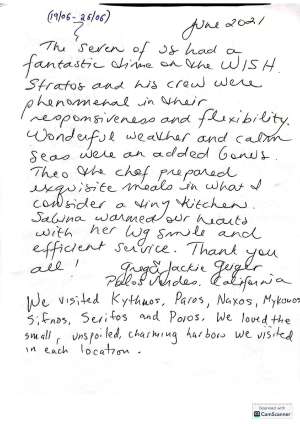 (19/06 - 26/06)
June 2021
The seven of us had a
fantastic time on the WISH.
Stratos and his crew were
phenomenal in their
responsiveness and flexibility.
Wonderful weather and calm
seas were an added bonus.
Theo the chef prepared
exquisite meals in what I
consider a tiny kitchen.
Sabina warmed our hearts
with her big smile and
efficient service. Thank you
all!
Greg & Jackie Geiger
Palos Verdes, California
We visited Kythnos, Paros, Naxos, Mykonos
Sifnos, Serifos and Poros. We loved the
small, unspoiled, charming harbors we visited
in each location.
Scanned with
CamScanner